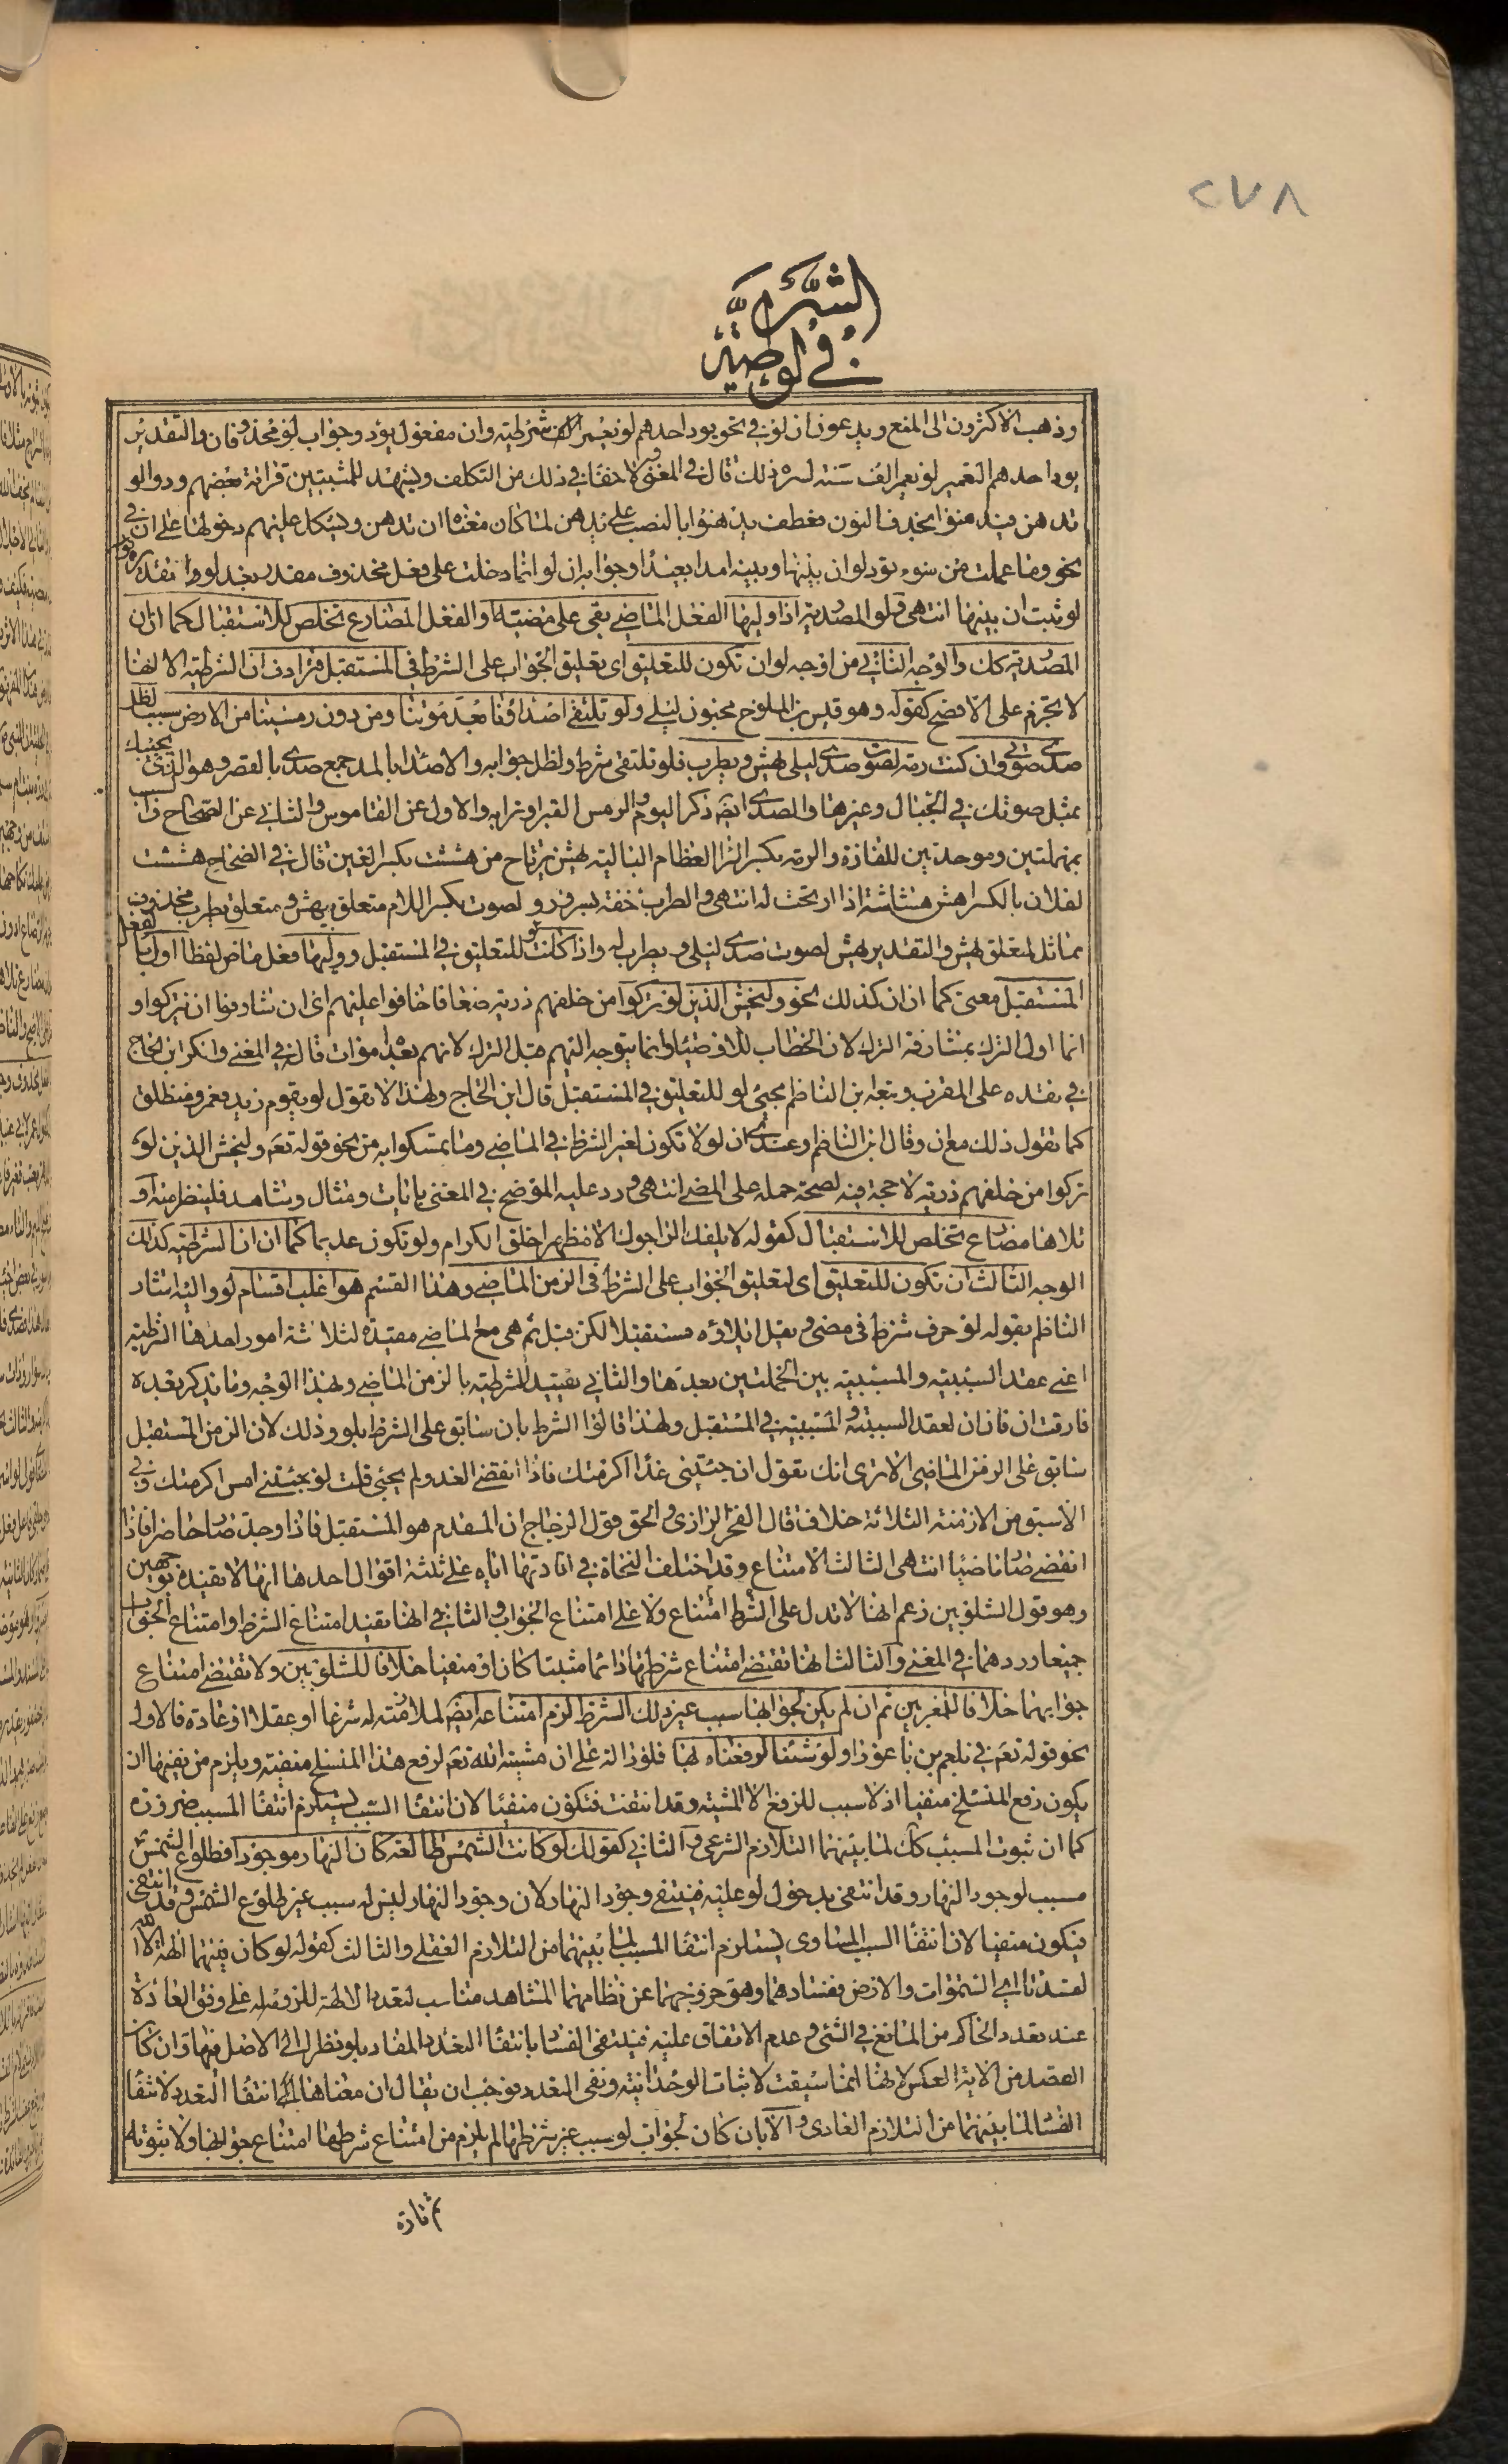 ٢٧٨
الشرطية
في لو
وذهب الاكثرون الى المنع ويدعون ان لو في نحو يود احدهم لو يعمر الف شرطية وان مفعول يود وجواب لو محذوفان والتقدير
يود احدهم التعمير لو يعمر الف سنة لسره ذلك قال في المغني ولا خفا في ذلك من التكلف ويشهد للمثبتين قرائة بعضهم ودوا لو
تدهن فيدهنوا بحذف النون فعطف يدهنوا بالنصب على تدهن لما كان معناه ان تدهن ويشكل عليهم دخولها على ان في
نحو وما عملت من سوء تود لو ان بينها وبينه امدا بعيدا وجوابه ان لو انما دخلت على فعل محذوف مقدر بعد لو تقديره
لو ثبت ان بينها انتهى ولو المصدرية اذا وليها الفعل الماضي بقى على مضيه او الفعل المضارع تخلص للاستقبال كما ان ان
المصدرية كك والوجه الثاني من اوجه لو ان تكون للتعليق اى تعليق الجواب على الشرط في المستقبل فترادف ان الشرطية الا انها
لا تجزم على الافصح كقوله وهو قيس بن الملوح مجنون ليلى ولو تلتقى اصداؤنا بعد موتنا ومن دون رمسينا من الارض سبسب لظل
صدى صوتي وان كنت رمة لصوت صدى ليلى يهش ويطرب فلو تلتقى شرط ولظل جوابه والاصدا بالمد جمع صدى بالقصر وهو الذي يجيبك
بمثل صوتك في الجبال وغيرها والصدى ايضا ذكر اليوم والرمس القبر او ترابه والاول عن القاموس والثاني عن الصحاح والسبسب
بمهملتين وموحدتين المفازة والرمة بكسر الرا العظام البالية يهش يرتاح من هششت بكسر العين قال في الصحاح هششت
لفلان بالكسر اهش هشاشة اذا ارتحت له انتهى والطرب خفة بسرور ولصوت بكسر اللام متعلق بيهش ومتعلق يطرب محذوف
مماثل لمتعلق يهش والتقدير يهش لصوت صدى ليلى ويطرب له واذا كانت لو للتعليق في المستقبل ووليها فعل ماض لفظا اول بالفعل
المستقبل معنى كما ان ان كذلك نحو وليخش الذين لو تركوا من خلفهم ذرية ضعافا خافوا عليهم اى ان شارفوا ان يتركوا و
انما اول الترك بمشارفة الترك لان الخطاب للاوصيا وانما يتوجه اليهم قبل الترك لانهم بعده اموات قال في المغنى وانكر ابن الحاج
في نقده على المقرب وتبعه ابن الناظم مجئ لو للتعليق في المستقبل قال ابن الحاج ولهذا لا تقول لو يقوم زيد فعمرو منطلق
كما تقول ذلك مع ان وقال ابن الناظم وعندى ان لو لا تكون لغير الشرط في الماضى وما تمسكوا به من نحو قوله تعم وليخش الذين لو
تركوا من خلفهم ذرية لا حجة فيه لصحة حمله على المضى انتهى ورد عليه الموضح في المغنى بايات ومثال وشاهد فلينظر منه او
تلاها مضارع تخلص للاستقبال كقوله لا يلفك الراجوك الا مظهرا خلق الكرام ولو تكون عديما كما ان ان الشرطية كذلك
الوجه الثالث ان تكون للتعليق اى لتعليق الجواب على الشرط في الزمن الماضى وهذا القسم هو اغلب اقسام لو واليه اشار
الناظم بقوله لو حرف شرط في مضى ويقل ايلاؤه مستقبلا لكن قبل ثم هى مع الماضى مقيدة لثلاثة امور احدها الشرطية
اعنى عقد السببية والمسببية بين الجملتين بعدها والثاني تقييد الشرطية بالزمن الماضى وبهذا الوجه وما يذكر بعده
فارقت ان فان ان لعقد السببية والمسببية في المستقبل ولهذا قالوا الشرط بان سابق على الشرط بلو وذلك لان الزمن المستقبل
سابق على الزمن الماضى الا ترى انك تقول ان جئتنى غدا اكرمتك فاذا انقضى الغد ولم يجئ قلت لو جئتنى امس اكرمتك وفي
الاسبق من الازمنة الثلاثة خلاف قال الفخر الرازى والحق قول الزجاج ان المقدم هو المستقبل فاذا وجد صار حاضرا فاذا
انقضى صار ماضيا انتهى الثالث الامتناع وقد اختلف النحاة في افادتها اياه على ثلثة اقوال احدها انها لا تفيده بوجهين
وهو قول الشلوبين زعم انها لا تدل على الشرط امتناع ولا على امتناع الجواب والثاني انها تفيد امتناع الشرط وامتناع الجواب
جميعا وردهما في المغنى والثالث انها تقتضى امتناع شرطها دائما مثبتا كان او منفيا خلافا للشلوبين ولا تقتضى امتناع
جوابها خلافا للمعربين ثم ان لم يكن لجوابها سبب غير ذلك الشرط لزم امتناعه ايضا لملازمته له شرعا او عقلا او عادة فالاول
نحو قوله تعم في بلعم بن باعورا ولو شئنا لرفعناه بها فلو دالة على ان مشيته الله تعم لرفع هذا المنسلخ منفية ويلزم من نفيها ان
يكون رفع المنسلخ منفيا اذ لا سبب للرفع الا المشية وقد انتفت فتكون منفيا لان انتفا السبب يستلزم انتفا المسبب ضرورة
كما ان ثبوت المسبب كك لما بينهما التلازم الشرعى والثاني كقولك لو كانت الشمس طالعة كان النهار موجودا فطلوع الشمس
مسبب لوجود النهار وقد انتفى بدخول لو عليه فينتفى وجود النهار لان وجود النهار ليس له سبب غير طلوع الشمس وقد انتفى
فيكون منفيا لان انتفا السبب المساوى يستلزم انتفا المسبب لما بينهما من التلازم العقلى والثالث كقوله لو كان فيهما الهة الا الله
لفسدتا اى السموات والارض ففسادهما وهو خروجهما عن نظامهما المشاهد مناسب لتعدد الالهة للزومه له على وفق العادة
عند تعدد الحاكم من التمانع في الشئ وعدم الاتفاق عليه فينتفى الفساد بانتفا التعدد المفاد بلو نظرا الى الاصل فيها وان كان
القصد من الاية العكس لانها انما سيقت لاثبات الوحدانية ونفى التعدد فوجب ان يقال ان معناها انتفا التعدد لانتفا
الفساد لما بينهما من التلازم العادى والا بان كان لجواب لو سبب غير شرطها لم يلزم من امتناع شرطها امتناع جوابها ولا ثبوته
ثم تارة